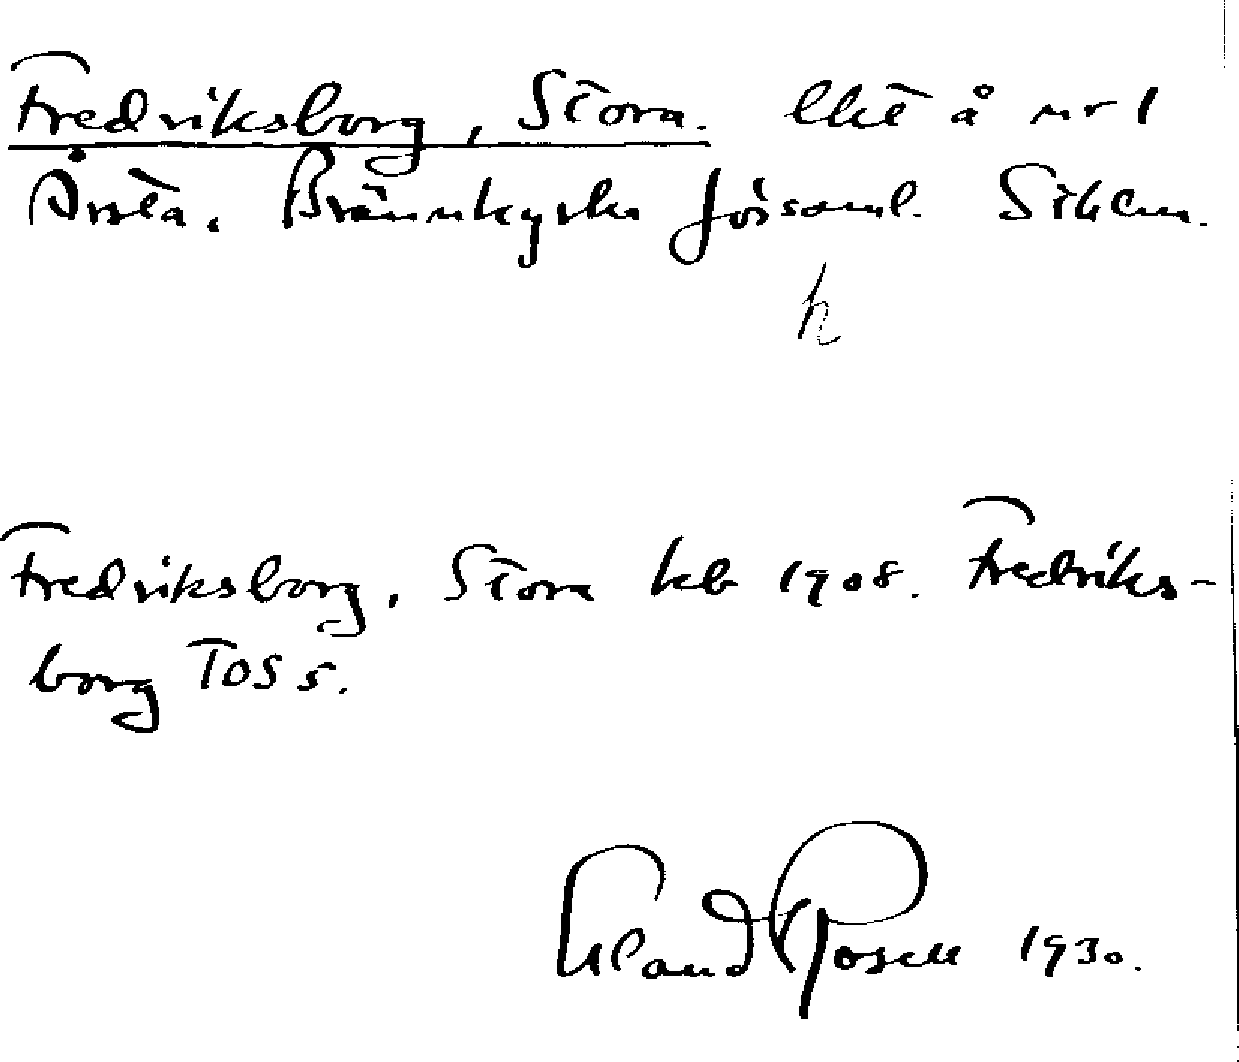 Fredriksborg, Stora. lht å nr 1
Årsta. Brännkyrka församl. Sthlm.
h
Fredriksborg, Stora keb 1908. Fredriks-
borg TOS 5.
Erland Rosell 1930.